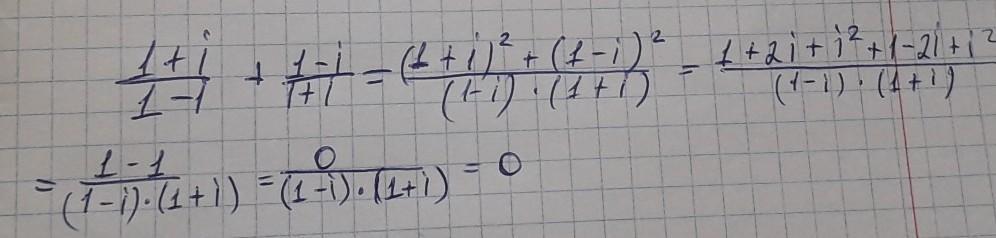 (1+i)/(1-i) + (1-i)/(1+i) = ((1+i)² + (1-i)²)/((1-i)·(1+i)) = (1+2i+i²+1-2i+i²)/((1-i)·(1+i))
= (1-1)/((1-i)·(1+i)) = 0/((1-i)·(1+i)) = 0